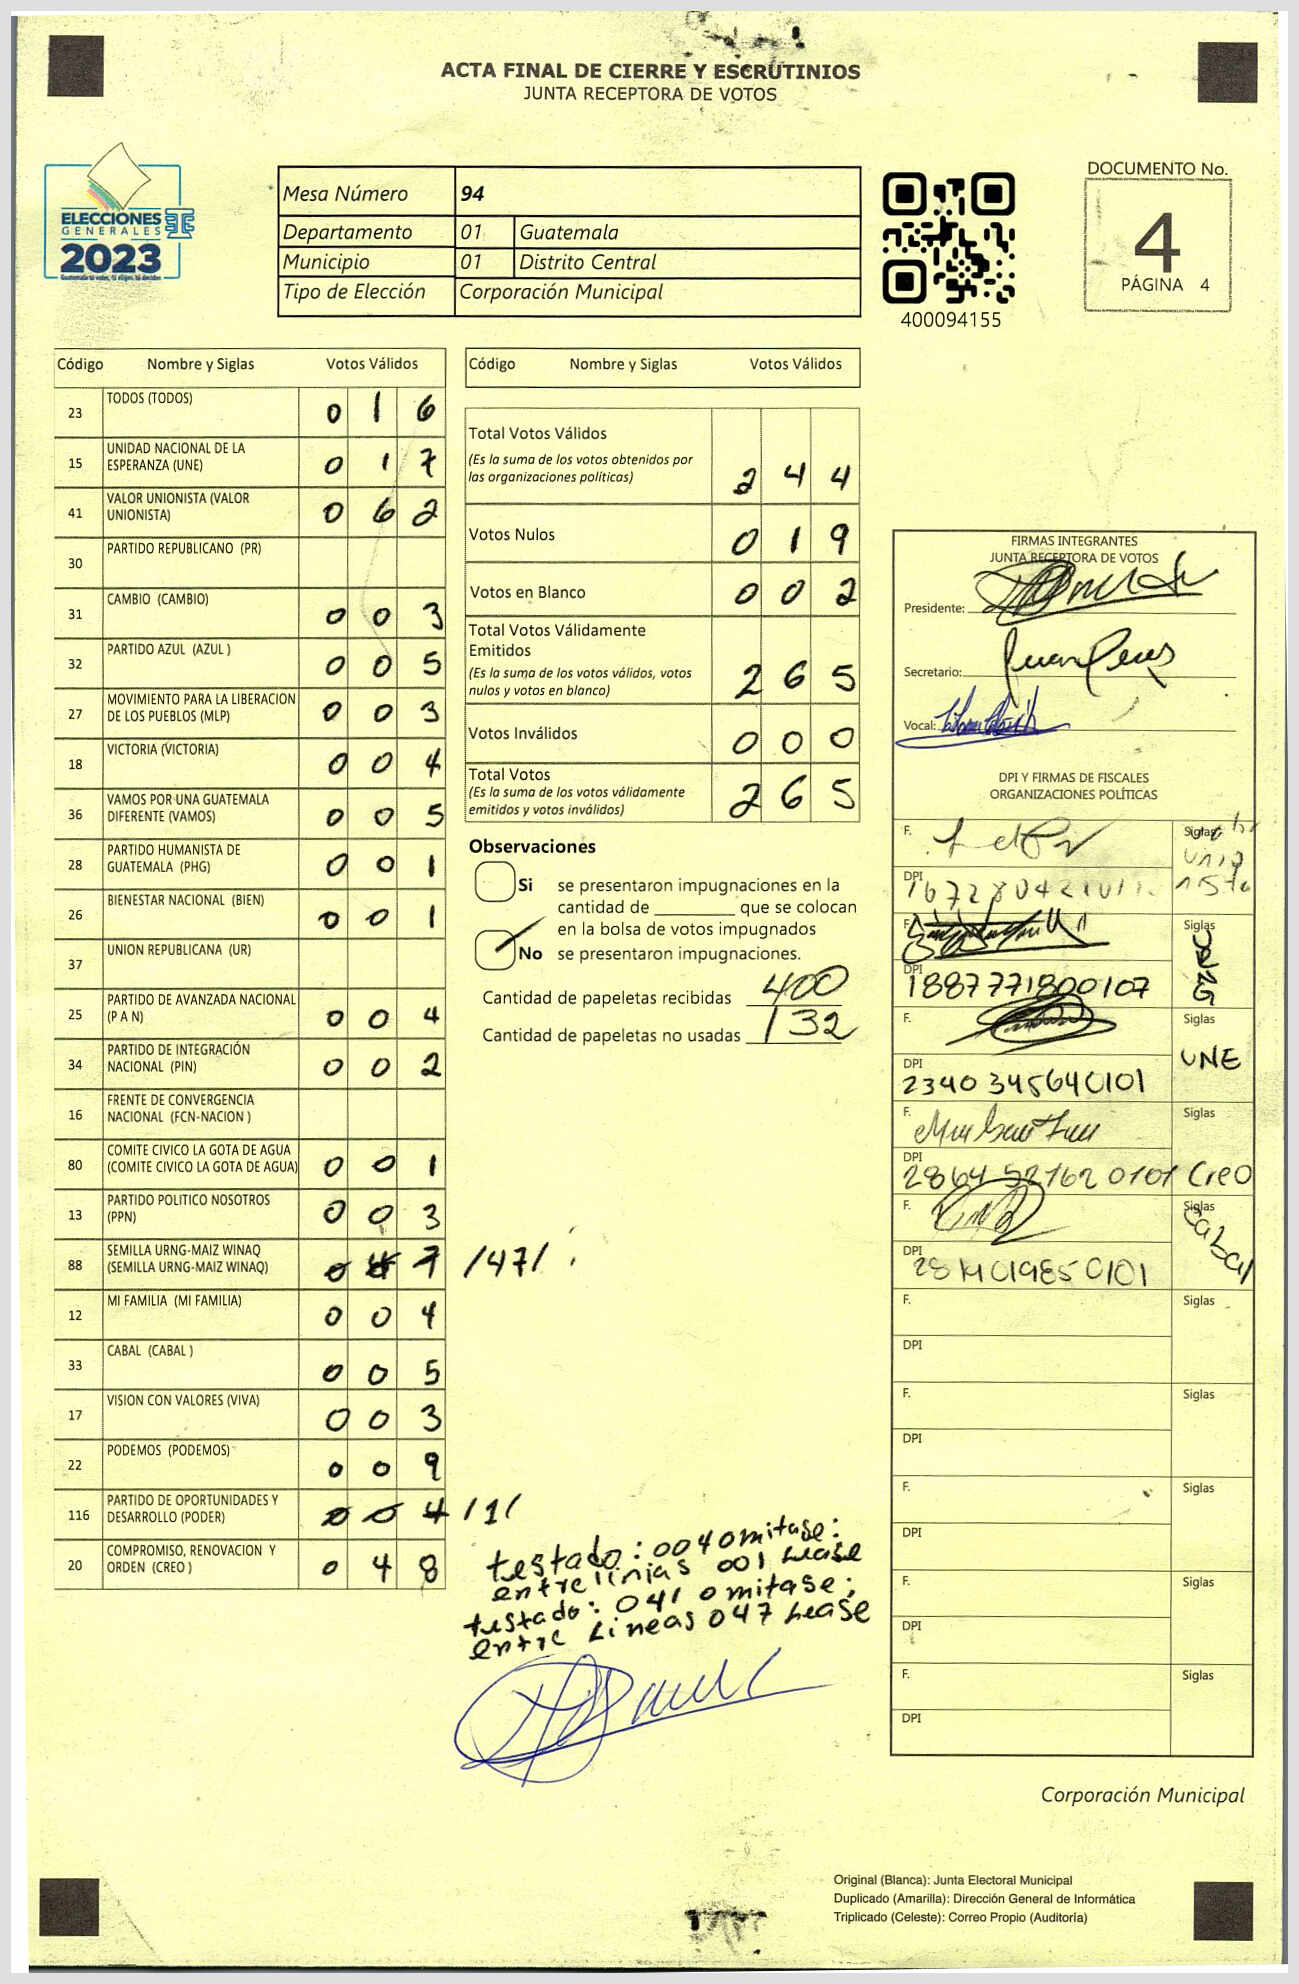 ACTA FINAL DE CIERRE Y ESCRUTINIOS
JUNTA RECEPTORA DE VOTOS
ELECCIONES
GENERALES
2023
Mesa Número 94
Departamento 01 Guatemala
Municipio 01 Distrito Central
Tipo de Elección Corporación Municipal
400094155
DOCUMENTO No.
4
PÁGINA 4
Código Nombre y Siglas Votos Válidos
23 TODOS (TODOS) 0 1 6
15 UNIDAD NACIONAL DE LA
ESPERANZA (UNE) 0 1 7
41 VALOR UNIONISTA (VALOR
UNIONISTA) 0 6 2
30 PARTIDO REPUBLICANO (PR)
31 CAMBIO (CAMBIO) 0 0 3
32 PARTIDO AZUL (AZUL ) 0 0 5
27 MOVIMIENTO PARA LA LIBERACION
DE LOS PUEBLOS (MLP) 0 0 3
18 VICTORIA (VICTORIA) 0 0 4
36 VAMOS POR UNA GUATEMALA
DIFERENTE (VAMOS) 0 0 5
28 PARTIDO HUMANISTA DE
GUATEMALA (PHG) 0 0 1
26 BIENESTAR NACIONAL (BIEN) 0 0 1
37 UNION REPUBLICANA (UR)
25 PARTIDO DE AVANZADA NACIONAL
(P A N) 0 0 4
34 PARTIDO DE INTEGRACIÓN
NACIONAL (PIN) 0 0 2
16 FRENTE DE CONVERGENCIA
NACIONAL (FCN-NACION )
80 COMITE CIVICO LA GOTA DE AGUA
(COMITE CIVICO LA GOTA DE AGUA) 0 0 1
13 PARTIDO POLITICO NOSOTROS
(PPN) 0 0 3
88 SEMILLA URNG-MAIZ WINAQ
(SEMILLA URNG-MAIZ WINAQ) /47/
12 MI FAMILIA (MI FAMILIA) 0 0 4
33 CABAL (CABAL ) 0 0 5
17 VISION CON VALORES (VIVA) 0 0 3
22 PODEMOS (PODEMOS) 0 0 9
116 PARTIDO DE OPORTUNIDADES Y
DESARROLLO (PODER) 0 0 4 /1/
20 COMPROMISO, RENOVACION Y
ORDEN (CREO ) 0 4 8
Código Nombre y Siglas Votos Válidos
Total Votos Válidos
(Es la suma de los votos obtenidos por
las organizaciones políticas) 2 4 4
Votos Nulos 0 1 9
Votos en Blanco 0 0 2
Total Votos Válidamente
Emitidos
(Es la suma de los votos válidos, votos
nulos y votos en blanco) 2 6 5
Votos Inválidos 0 0 0
Total Votos
(Es la suma de los votos válidamente
emitidos y votos inválidos) 2 6 5
Observaciones
Si se presentaron impugnaciones en la
cantidad de ________ que se colocan
en la bolsa de votos impugnados
No se presentaron impugnaciones.
Cantidad de papeletas recibidas 400
Cantidad de papeletas no usadas 132
testado: 004 omitase:
entrelinias 001 Lease
testado: 041 omitase;
entre Lineas 047 Lease
FIRMAS INTEGRANTES
JUNTA RECEPTORA DE VOTOS
Presidente:
Secretario: Juan Perez
Vocal:
DPI Y FIRMAS DE FISCALES
ORGANIZACIONES POLÍTICAS
F. Siglas
Unio
nista
DPI
F. Siglas
DPI 1887771800107
F. Siglas
UNE
DPI 2340 345640101
F. Siglas
DPI 2864 52162 0101 Creo
F. Siglas
Cabal
DPI 2814019850101
F. Siglas
DPI
F. Siglas
DPI
F. Siglas
DPI
F. Siglas
DPI
F. Siglas
DPI
Corporación Municipal
Original (Blanca): Junta Electoral Municipal
Duplicado (Amarilla): Dirección General de Informática
Triplicado (Celeste): Correo Propio (Auditoría)